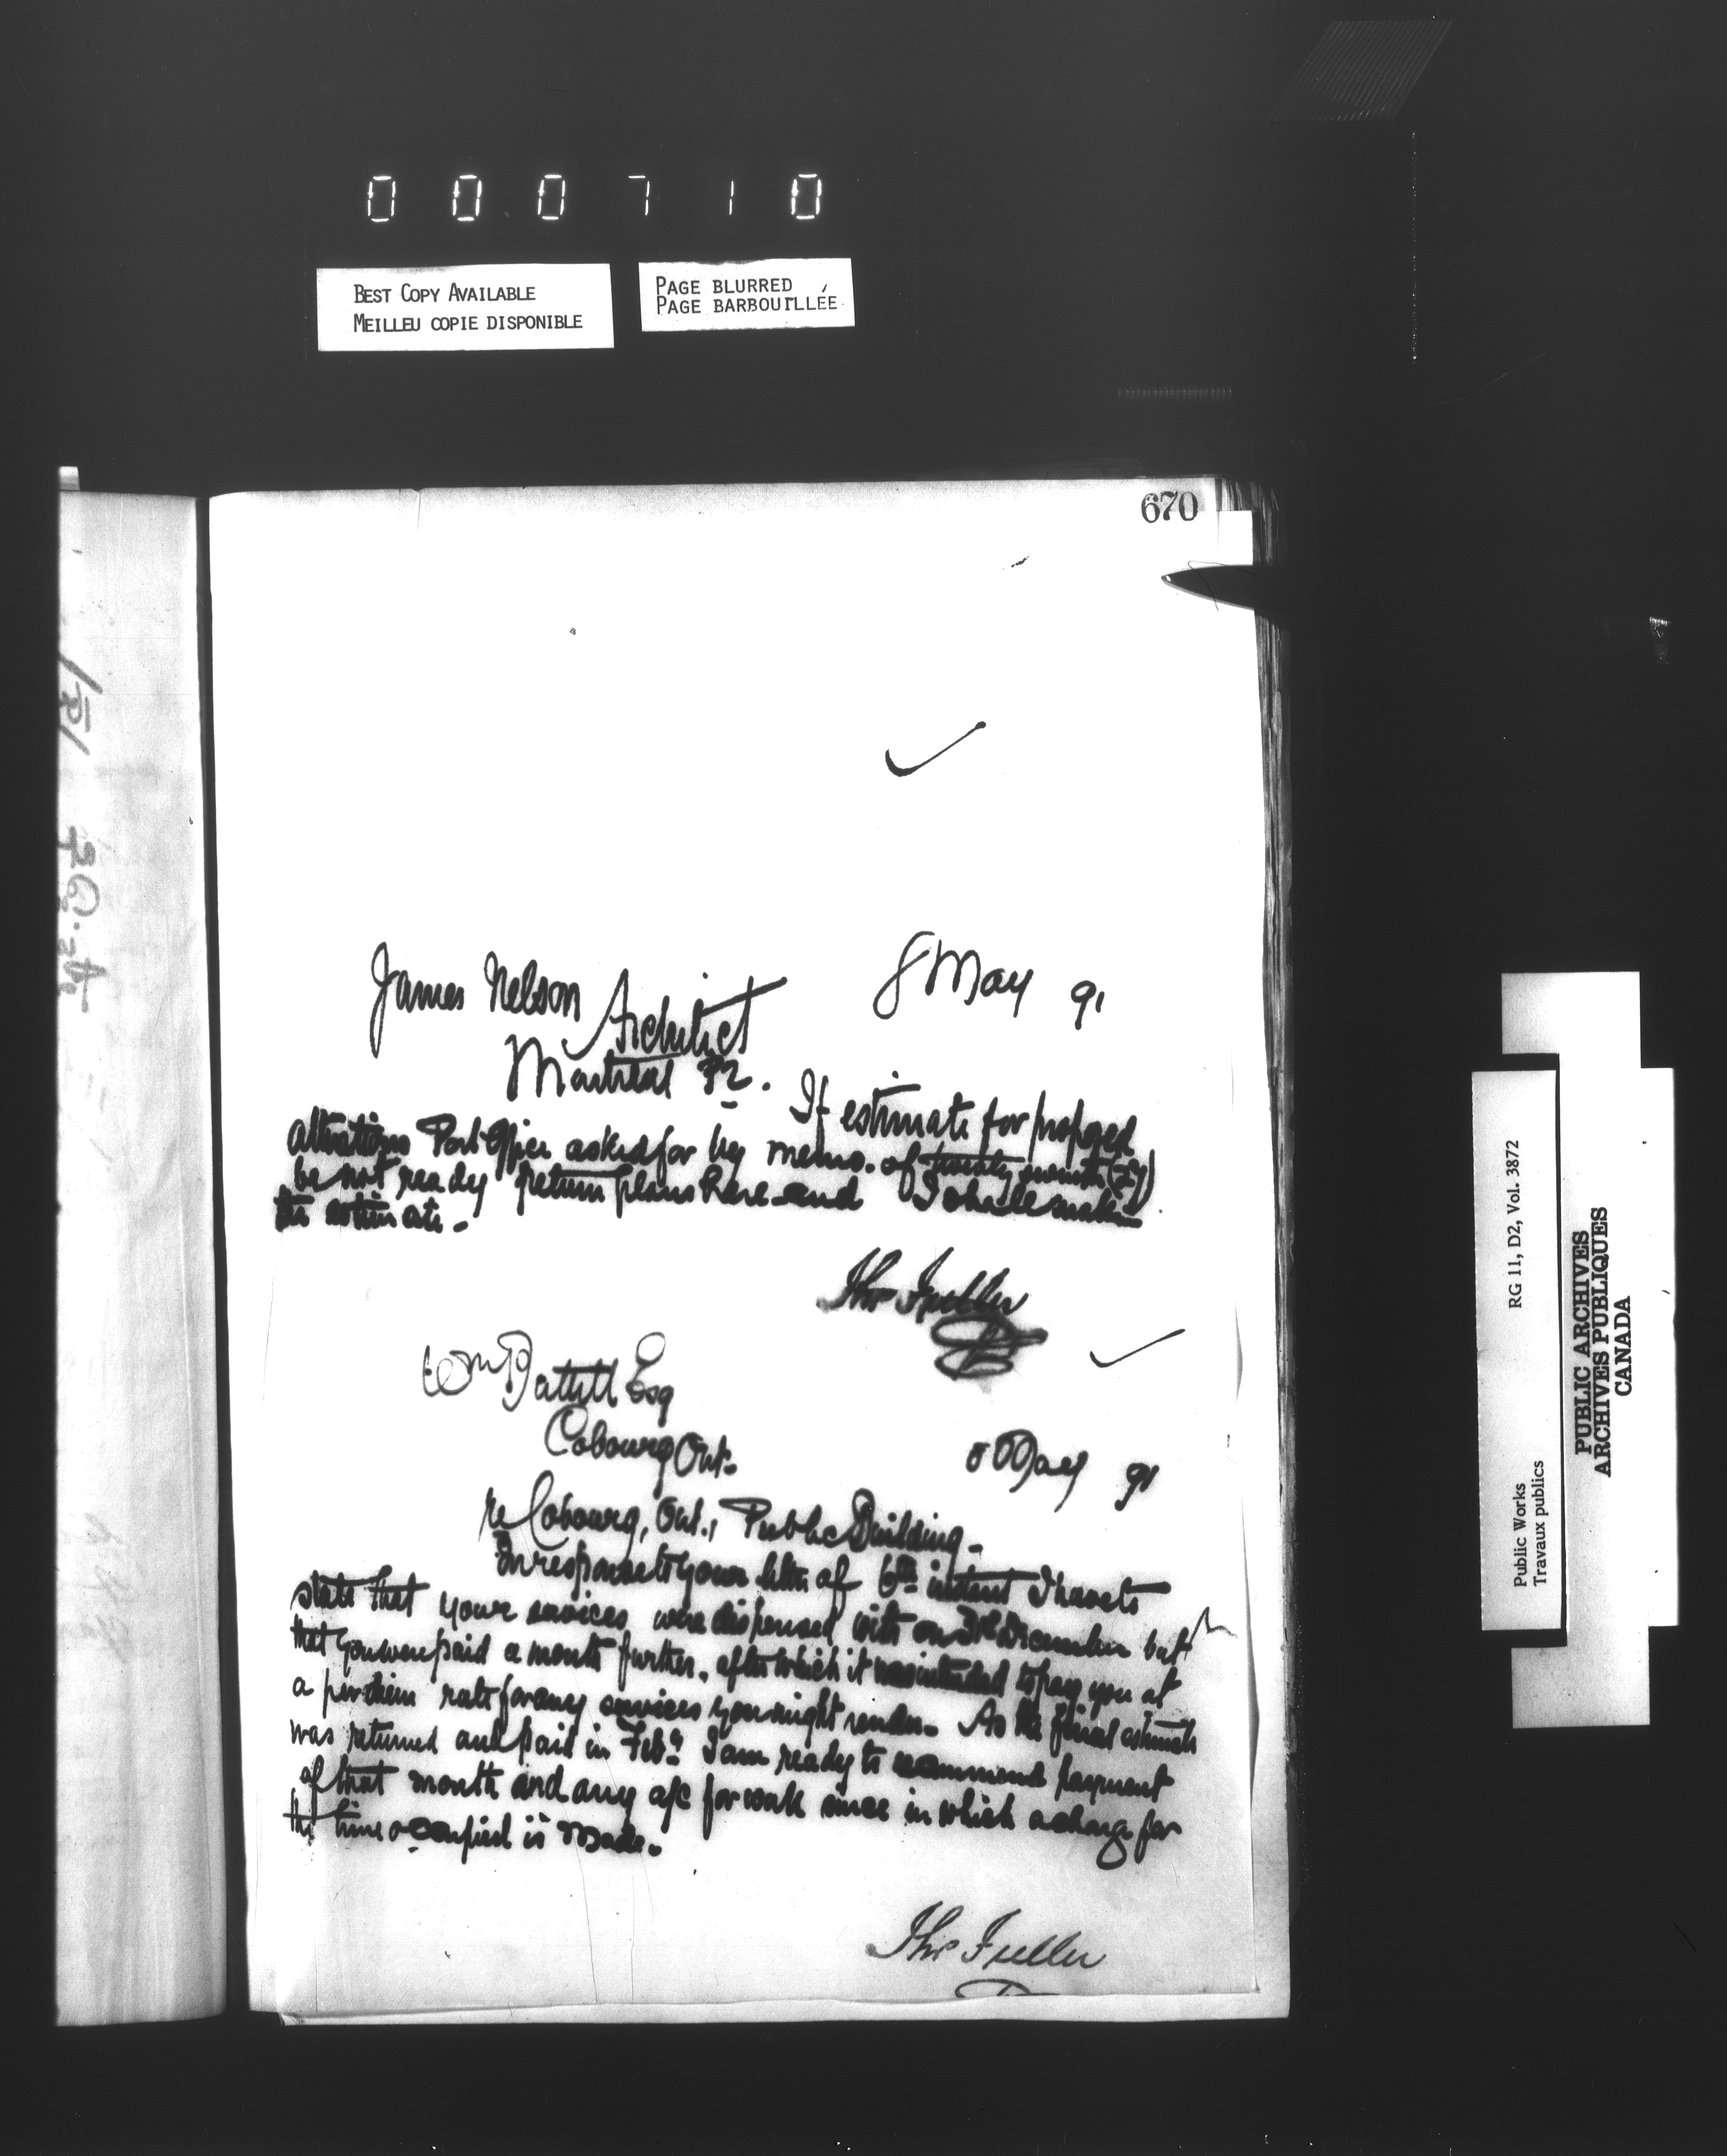 000710
BEST COPY AVAILABLE
MEILLEU COPIE DISPONIBLE
PAGE BLURRED
PAGE BARBOUILLÉE
670
James Nelson
8 May 91
Architect
Montreal
If estimate for proposed
alterations Post Office asked for by memo. of
be not ready return plans here and I shall make
the estimate.
Thos Fuller
Wm Esq
Cobourg Ont.
8 May 91
re Cobourg, Ont., Public Building.
In response to your letter of 6th instant I have to
state that your services were dispensed with on December but
that you were paid a month further, after which it was intended to pay you at
a per diem rate for any services you might render. As the final estimate
was returned and paid in Feby I am ready to recommend payment
of that month and any a/c for work since in which a charge for
the time occupied is made.
Thos Fuller
Public Works
Travaux publics
RG 11, D2, Vol. 3872
PUBLIC ARCHIVES
ARCHIVES PUBLIQUES
CANADA